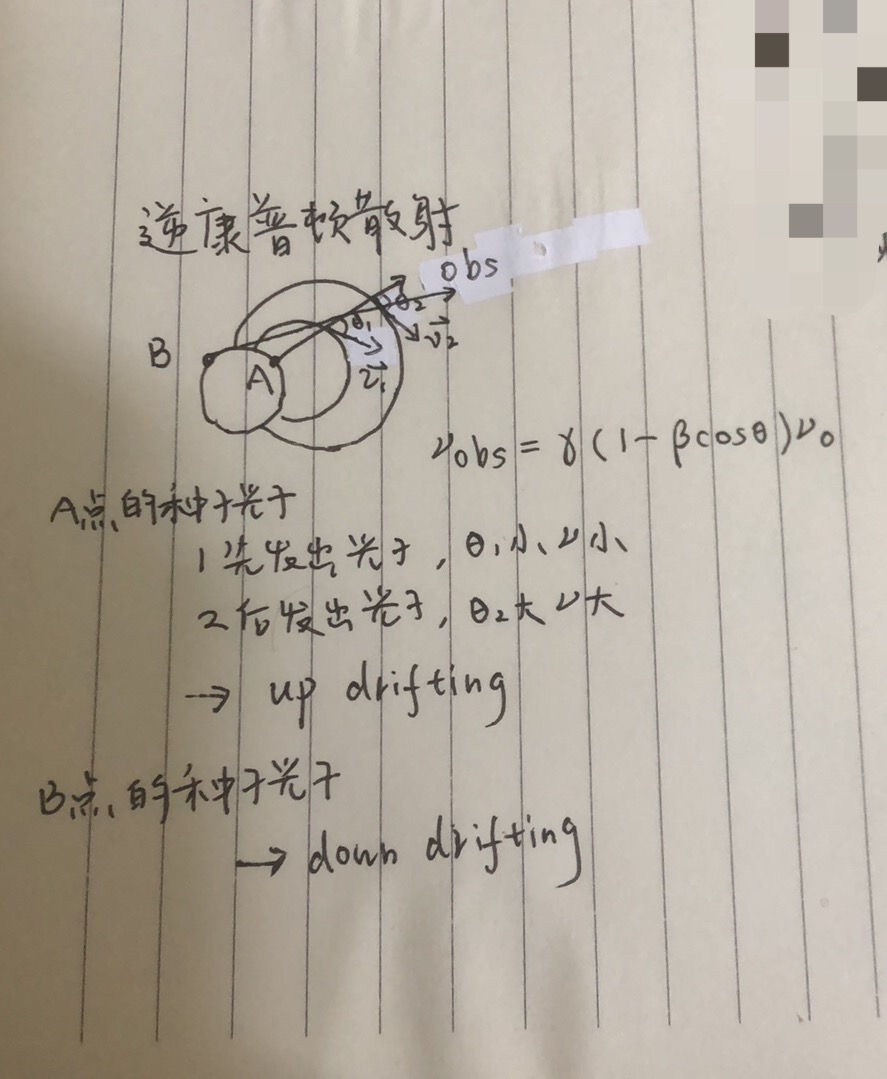 逆康普顿散射
obs
θ₂
θ₁
v⃗₂
B
A
v⃗₁
ν obs = γ(1-βcosθ)ν₀
A点的种子光子
1先发出光子, θ₁小、ν小
2后发出光子, θ₂大ν大
→ up drifting
B点的种子光子
→ down drifting